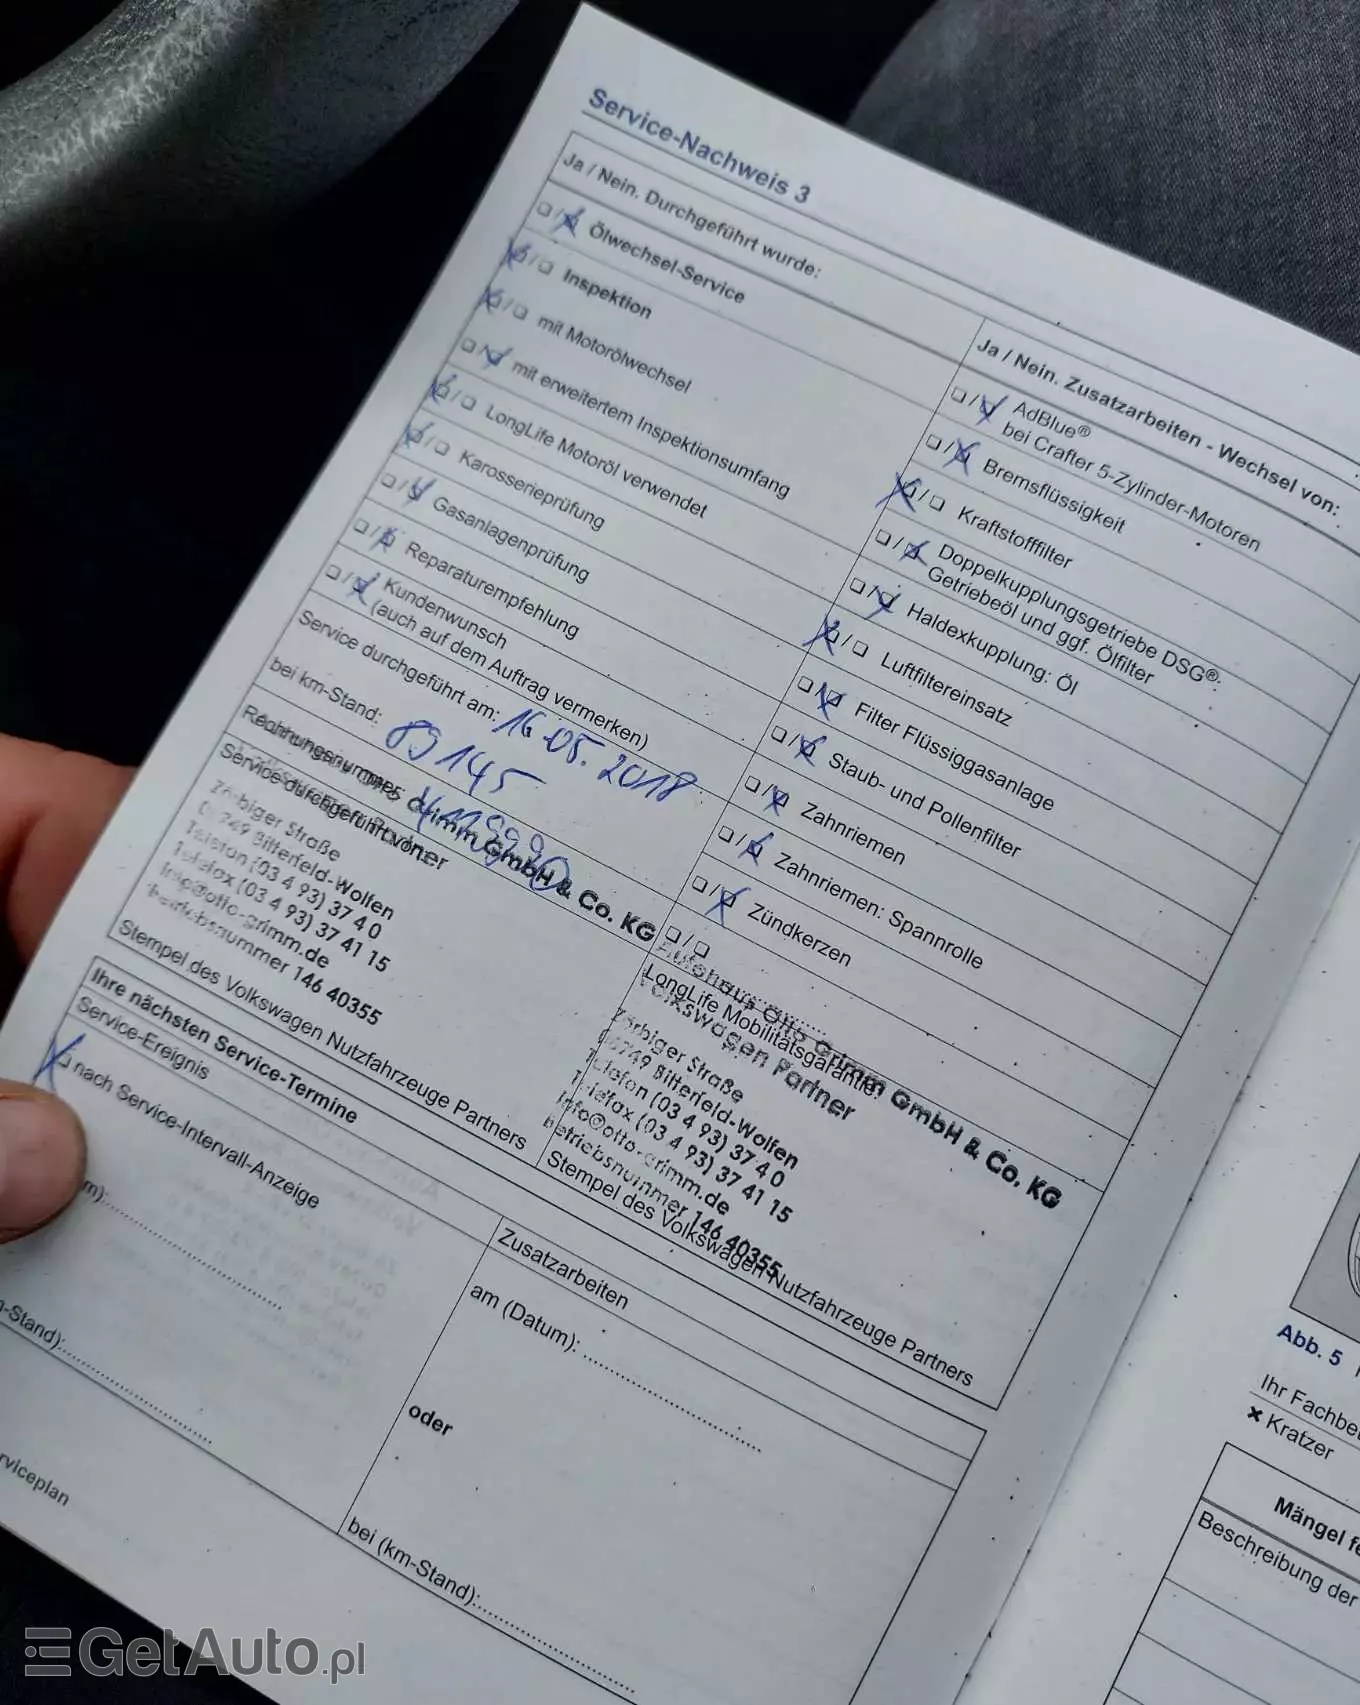 Service-Nachweis 3
Ja / Nein. Durchgeführt wurde:
Ölwechsel-Service
Inspektion
mit Motorölwechsel
mit erweitertem Inspektionsumfang
LongLife Motoröl verwendet
Karosserieprüfung
Gasanlagenprüfung
Reparaturempfehlung
Kundenwunsch
(auch auf dem Auftrag vermerken)
Service durchgeführt am: 16.05.2018
bei km-Stand: 89145
Rechnungsnummer:
Service durchgeführt von:
Grimm GmbH & Co. KG
Zörbiger Straße
06749 Bitterfeld-Wolfen
Telefon (03 4 93) 37 4 0
Telefax (03 4 93) 37 41 15
info@otto-grimm.de
Betriebsnummer 146 40355
Stempel des Volkswagen Nutzfahrzeuge Partners
Ja / Nein. Zusatzarbeiten - Wechsel von:
AdBlue®
bei Crafter 5-Zylinder-Motoren
Bremsflüssigkeit
Kraftstofffilter
Doppelkupplungsgetriebe DSG®:
Getriebeöl und ggf. Ölfilter
Haldexkupplung: Öl
Luftfiltereinsatz
Filter Flüssiggasanlage
Staub- und Pollenfilter
Zahnriemen
Zahnriemen: Spannrolle
Zündkerzen
LongLife Mobilitätsgarantie:
Autohaus Otto Grimm GmbH & Co. KG
Volkswagen Partner
Zörbiger Straße
06749 Bitterfeld-Wolfen
Telefon (03 4 93) 37 4 0
Telefax (03 4 93) 37 41 15
info@otto-grimm.de
Betriebsnummer 146 40355
Stempel des Volkswagen Nutzfahrzeuge Partners
Ihre nächsten Service-Termine
Service-Ereignis
nach Service-Intervall-Anzeige
Zusatzarbeiten
am (Datum):
oder
bei (km-Stand):
Abb. 5
Ihr Fachbe
× Kratzer
Mängel fe
Beschreibung der
GetAuto.pl